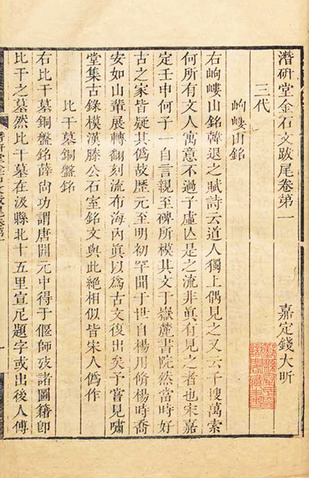 潛研堂金石文跋尾卷第一
嘉定錢大昕
三代
岣嶁山銘
右岣嶁山銘韓退之賦詩云道人獨上偶見之又云千搜萬索
何所有文人寓意不過子虛亾是之流非真有見之者也宋嘉
定壬申何子一自言親至碑所模其文于嶽麓書院然當時好
古之家皆疑其偽故歷元至明初罕聞于世自楊用脩楊時喬
安如山輩展轉翻刻流布海內眞以為古文復出矣予嘗見嘯
堂集古錄模漢滕公石室銘文與此絕相似皆宋人偽作
比干墓銅盤銘
右比干墓銅盤銘薛尚功謂唐開元中得于偃師攷諸圖籍卽
比干之墓然比干墓在汲縣北十五里宣尼題字或出後人傳